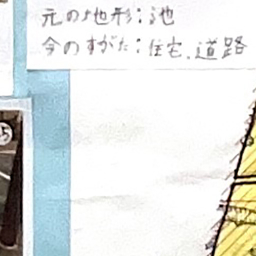 元の地形:池
今のすがた:住宅、道路